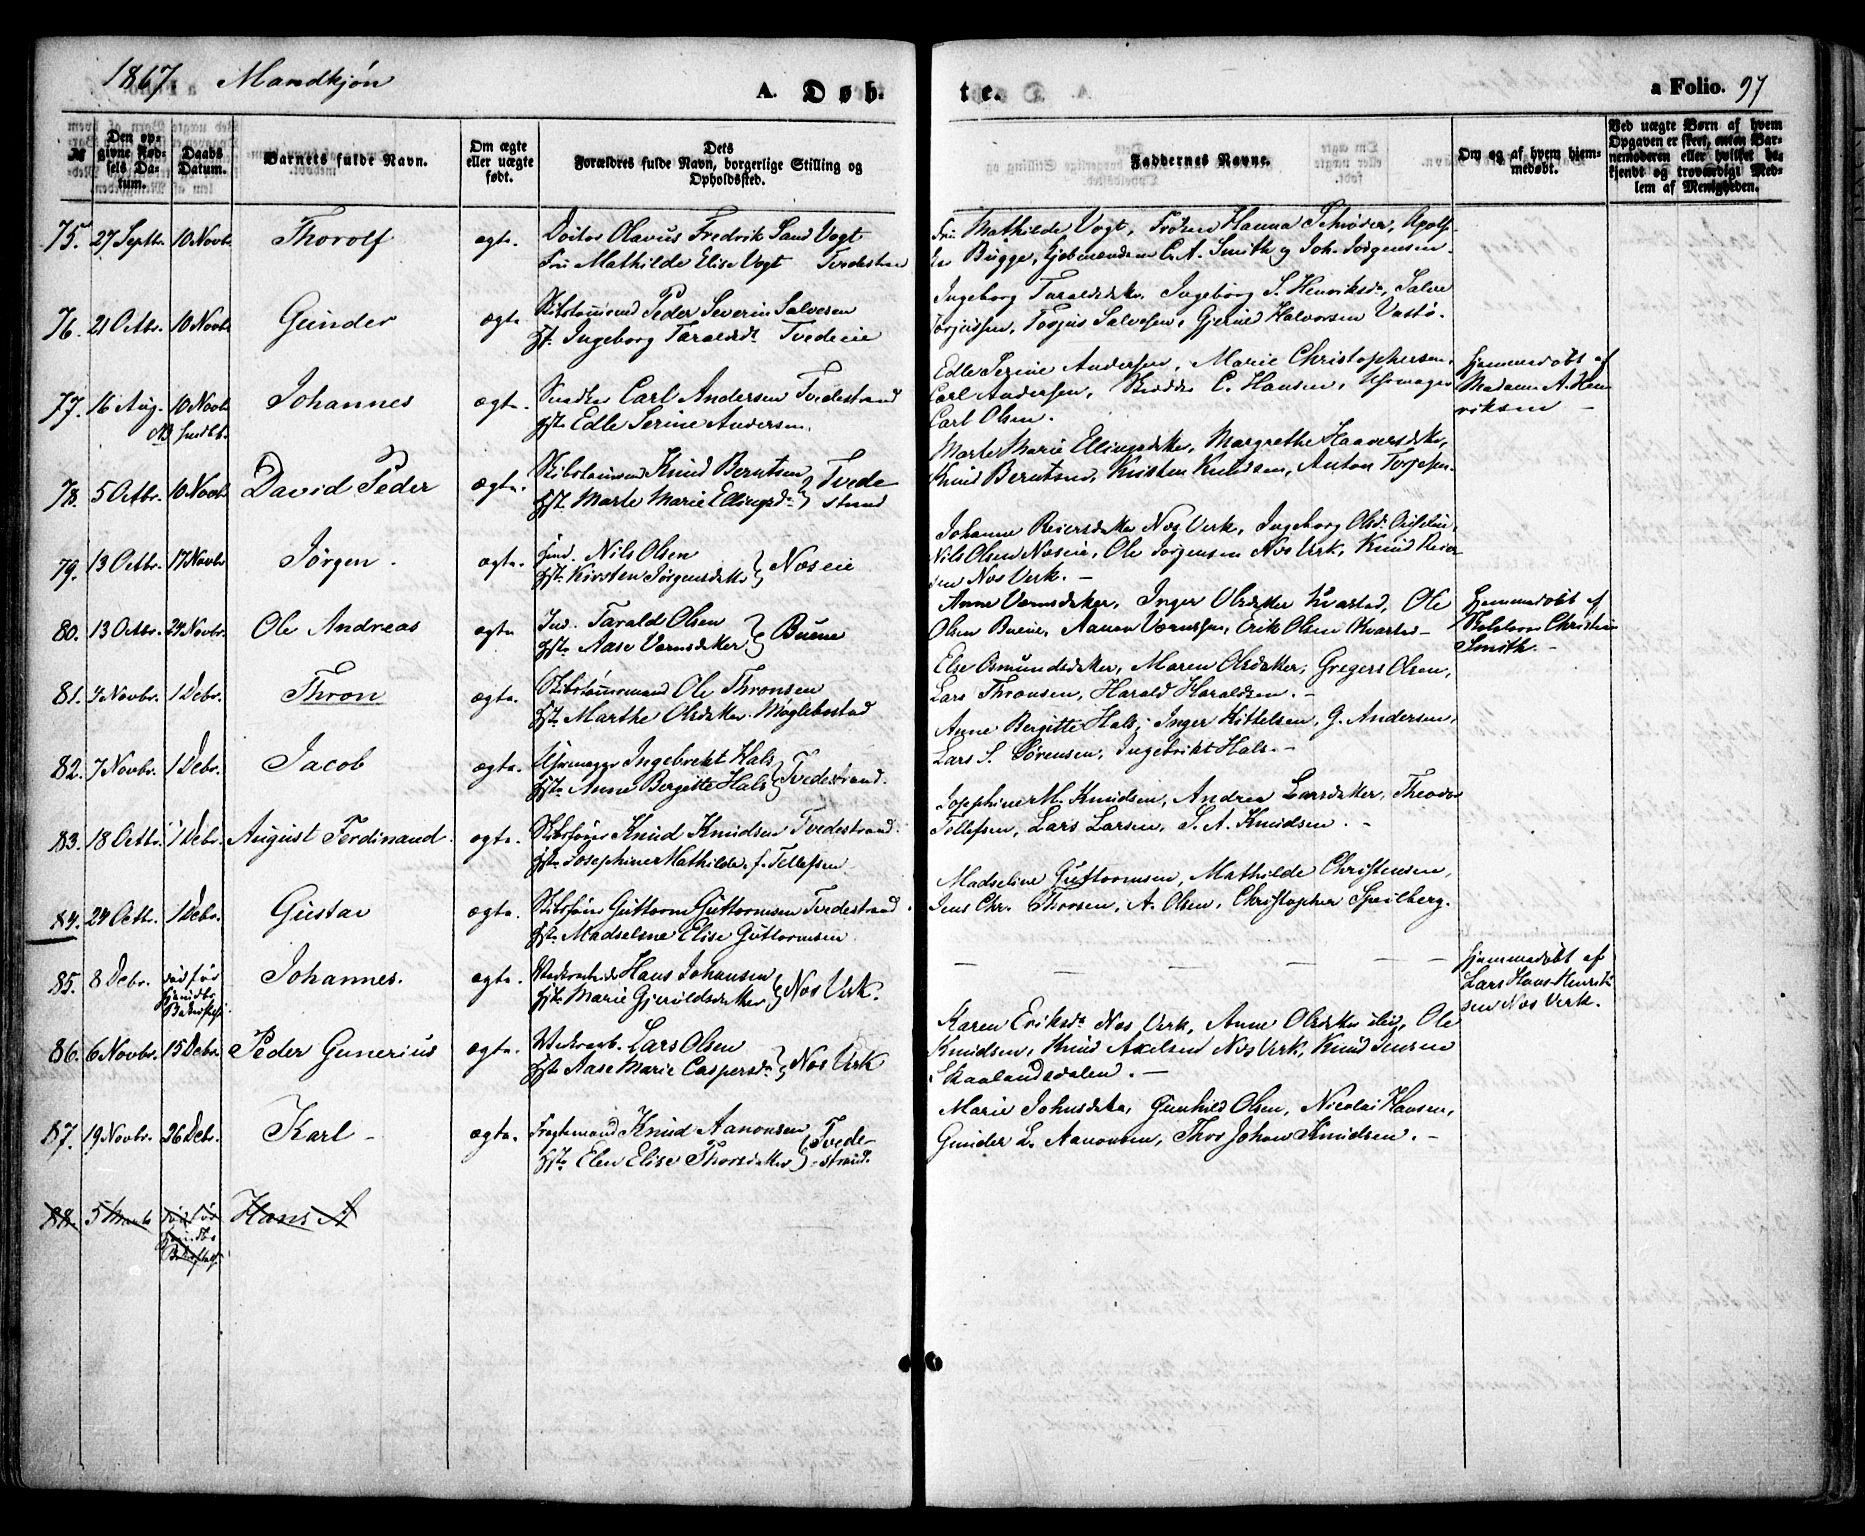 1867. Mandkjøn
A. Døb-
te.
a Folio. 97
№
Den op-
givne Fød-
sels Da-
tum.
Daabs
Datum.
Barnets fulde Navn.
Om ægte
eller uægte
født.
Dets
Forældres fulde Navn, borgerlige Stilling og
Opholdssted.
Faddernes Navne.
Om og af hvem hjem-
medøbt.
Ved uægte Børn af hvem
Opgaven er skeet, enten Bar-
nemoderen eller hvilket be-
kjendt og troværdigt Med-
lem af Menigheden.
75. 27 Septb. 10 Novb. Thorolf ægte. Doctor Olavus Fredrik Sand Vogt
Fru Mathilde Elise Vogt Tvedestrand
Fru Mathilde Vogt, Frøken Hanna Schrøder,
Bugge, Kjøbmændene C. A. Smith og Joh. Jørgensen
76. 21 Octbr. 10 Novb. Gunder ægte Skibstømmermand Peder Severin Salvesen
Hst. Ingeborg Taraldsdt. Tvedeeie
Ingeborg Taraldsdatter, Ingeborg S. Henriksdr, Salve
Torjussen, Torjus Salvesen, Gjerud Halvorsen Vastø.
77. 16 Aug. 10 Novb. Johannes ægte. Snedker Carl Andersen Tvedestrand
Hst. Edle Serine Andersen.
Edle Serine Andersen, Marie Christophersen,
Carl Andersen, C. Hansen, Uhrmager
Carl Olsen.
Hjemmedøbt af
Madam A. Hen-
riksen –
78. 5 Octbr. 10 Novb. David Peder ægte. Skibstømmermand Knud Berntsen
Hst. Marte Marie Ellingsdr. } Tvede
strand
Marte Marie Ellingsdatter, Margrethe Haaversdatter,
Knud Berntsen, Kristen Knudsen, Anton Torjesen.
79. 13 Octbr. 17 Novbr Jørgen. ægte. Nils Olsen
Hst. Kirsten Jørgensdatter } Næs eie
Johanne Reiersdatter Næs Verk, Ingeborg Olsdr.
Nils Olsen Næseie, Ole Jørgensen Næs Verk, Knud Reier
sen Næs Verk. –
80. 13 Octbr. 24 Novbr. Ole Andreas ægte Ind. Tarald Olsen
Hst. Aase Værnsdatter } Buene
Anne Værnsdatter, Inger Olsdatter Kvastad, Ole
Olsen Buene, Aanon Værnssen, Erik Olsen Kvastad –
Hjemmedøbt af
Christian
Smith. –
81. 4 Novbr. 1 Debr. Thron ægte. Skibstømmermand Ole Thronsen
Hst. Marthe Olsdatter. Møglebostad
Else Osmundsdatter, Maren Olsdatter, Gregers Olsen,
Lars Thronsen, Harald Haraldsen. –
82. 7 Novbr. 1 Debr. Jacob ægte. Uhrmager Ingebrekt Hals
Hst. Anne Bergitte Hals } Tvedestrand.
Anne Bergitte Hals, Inger Kittelsen, G. Andersen,
Lars S. Sørensen, Ingebrikt Hals. –
83. 18 Octbr. 1 Debr. August Ferdinand. ægte. Skibsfører Knud Knudsen Tvedestrand.
Hst. Josephine Mathilde f. Tellefsen
Josephine M. Knudsen, Andrea Larsdatter, Theodor
Tellefsen, Lars Larsen, S. A. Knudsen. –
84. 24 Octb. 1 Debr. Gustav ægte. Skibsfører Guttorm Guttormsen Tvedestrand.
Hst. Madseline Elise Guttormsen
Madseline Guttormsen, Mathilde Christensen,
Jens Chr. Thorsen, A. Olsen, Christopher Speilberg.
85. 8 Debr. død før Johannes. ægte. Hans Johansen
Hst. Marie Gjeruldsdatter } Næs Verk.
Hjemmedøbt af
Lars Hans Henrik
sen Næs Verk.
86. 6 Novbr. 15 Debr. Peder Gunerius ægte. Lars Olsen
Hst. Aase Marie Caspersdr. } Næs Verk
Karen Eriksdr. Næs Verk, Anne Olsdatter ibid, Ole
Knudsen, Knud Axelsen Næs Verk, Knud Jensen
Skaalandsdalen. –
87. 19 Novbr. 26 Debr. Karl – ægte. Fragtemand Knud Aanonsen
Hst. Elen Elise Thorsdatter } Tvede-
strand.
Marie Johnsdatter, Gunhild Olsen, Nicolai Hansen,
Gunder L. Aanonsen, Thor Johan Knudsen. –
88. 5 død før Hans A